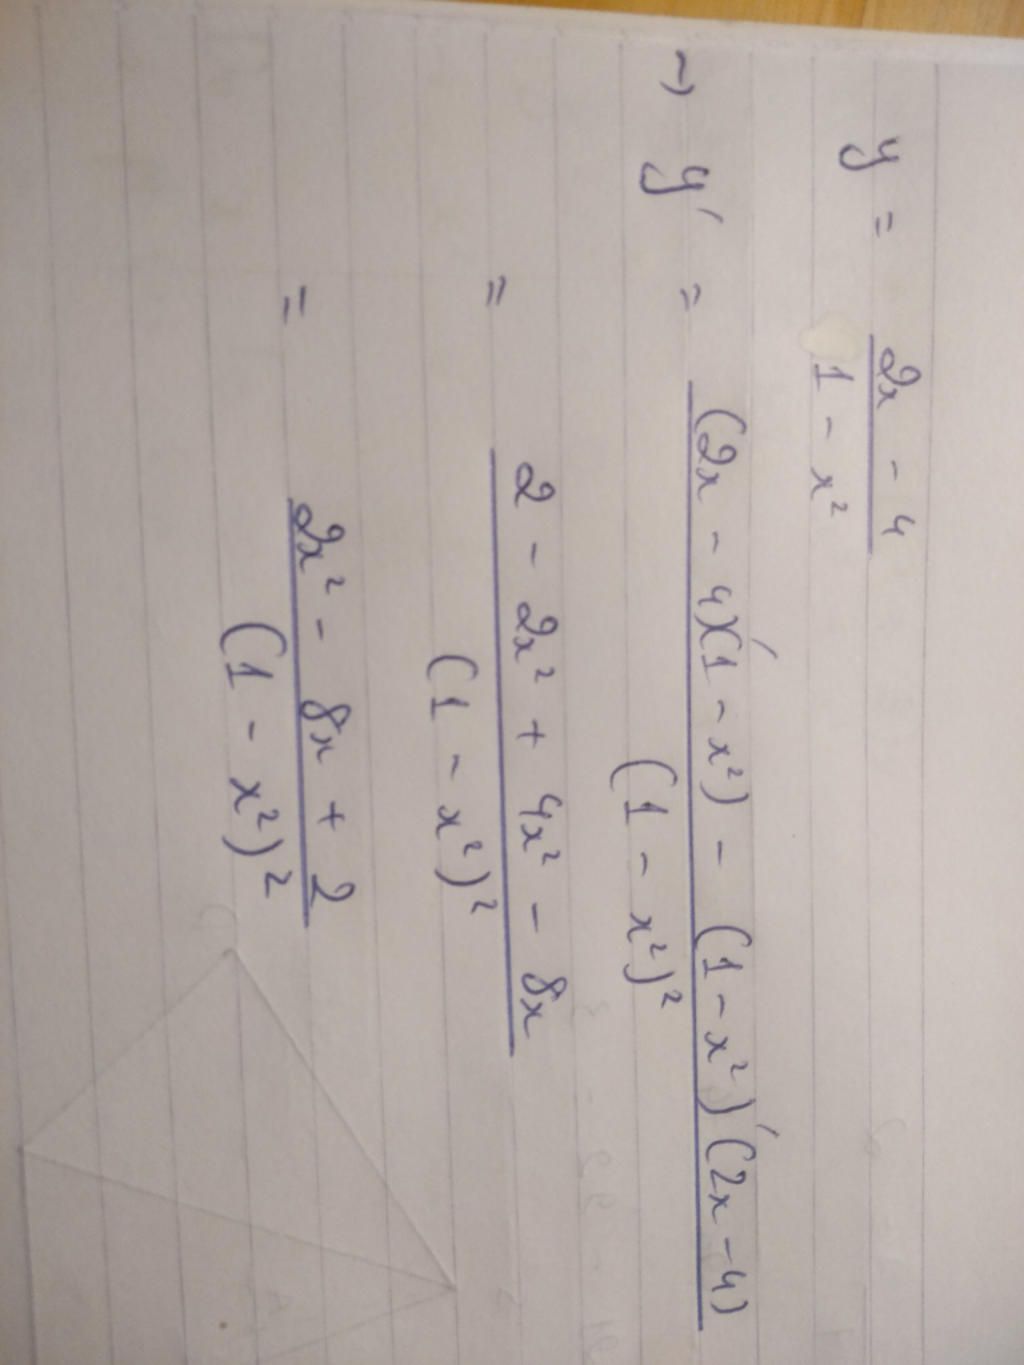 y = \frac{2x - 4}{1 - x^2}
→ y' = \frac{(2x - 4)'(1 - x^2) - (1 - x^2)'(2x - 4)}{(1 - x^2)^2}
= \frac{2 - 2x^2 + 4x^2 - 8x}{(1 - x^2)^2}
= \frac{2x^2 - 8x + 2}{(1 - x^2)^2}